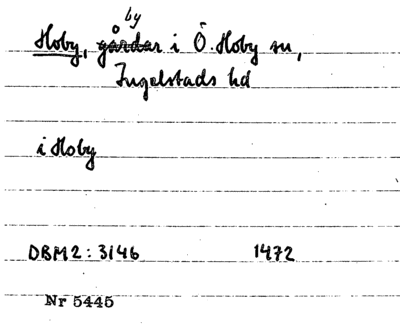 by
Hoby, gårdar i Ö. Hoby sn,
Ingelstads hd
i Hoby
DBM2: 3146 1472
Nr 5445